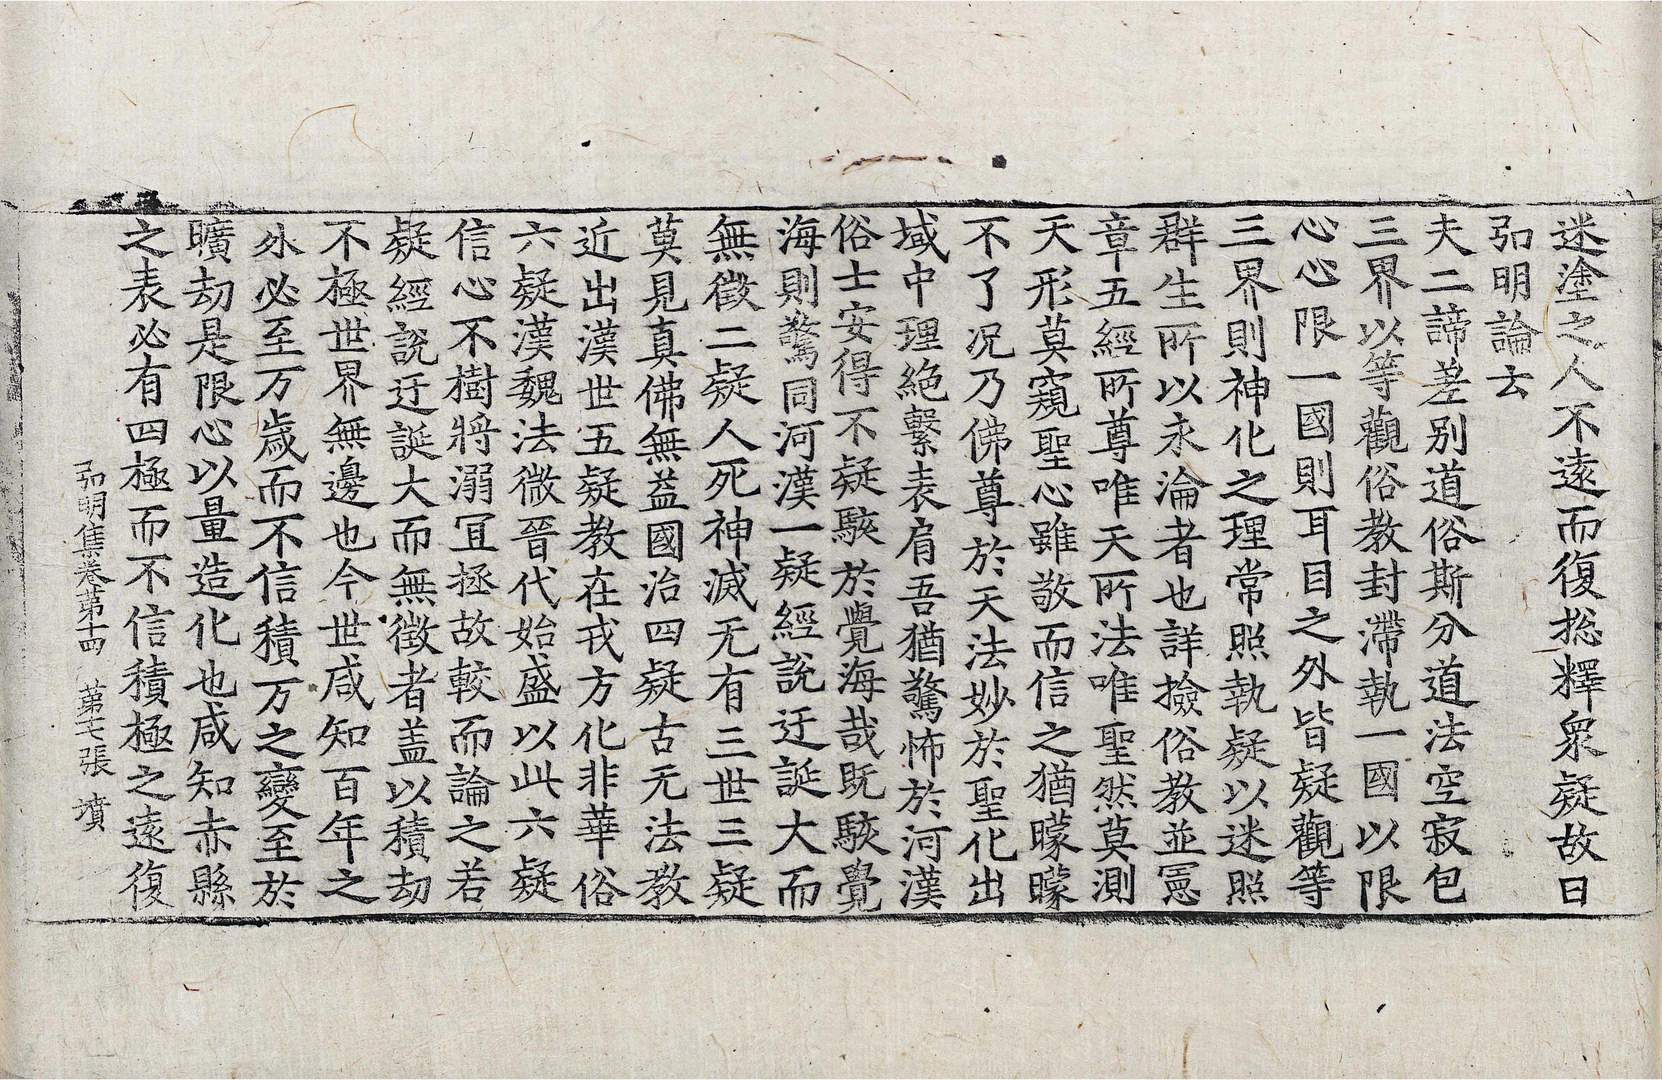 迷塗之人不遠而復捴釋衆疑故曰
弘明論云
夫二諦差別道俗斯分道法空寂包
三界以等觀俗教封滯執一國以限
心心限一國則耳目之外皆疑觀等
三界則神化之理常照執疑以迷照
群生所以永淪者也詳撿俗教並憲
章五經所尊唯天所法唯聖然莫測
天形莫窺聖心雖敬而信之猶矇矇
不了况乃佛尊於天法妙於聖化出
域中理絶繫表肩吾猶驚怖於河漢
俗士安得不疑駭於覺海哉既駭覺
海則驚同河漢一疑經説迂誕大而
無徵二疑人死神滅无有三世三疑
莫見真佛無益國治四疑古无法教
近出漢世五疑教在戎方化非華俗
六疑漢魏法微晉代始盛以此六疑
信心不樹將溺冝拯故較而論之若
疑經説迂誕大而無徵者盖以積劫
不極世界無邊也今世咸知百年之
外必至万歳而不信積万之變至於
曠劫是限心以量造化也咸知赤縣
之表必有四極而不信積極之遠復
弘明集卷第十四 第七張 墳